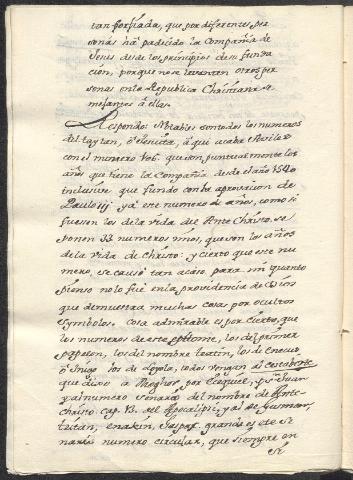 tan porfiada, que por diferentes per
sonas ha padecido la Compañia de
Jesus desde los principios de su funda
cion, porque no se levanten otros per
sonas en la Republica Christiana se
mejantes à ellas.
Respondo: Notables son todos los numeros
del Laytan, ò Jesuita, à que acaba
con el numero 166. que son puntualmente los
años que tiene la Compañia desde el año 1540
inclusive que fundo con la aprovacion de
Paulo iij. y à este numero de años, como si
fuessen los de la vida del Ante Christo, se
ponen 33 numeros, que son los años
de la vida de Christo: y cierto que este nu
mero, se causò tan acaso para mi quanto
pienso no lo fuè en la providencia de Dios
que demuestra muchas cosas por ocultos
symbolos. Cosa admirable es por cierto, que
los numeros de este los del primer
papelon, los del nombre teatin, los de Eneco
ò Iñigo los de Loyola, todos vengan
que dixo à por Ezequiel, p. Sn Juan
y al numero senario del nombre de Ante
Christo cap. 13. del Apocalipsi, y al de Gusman,
tatan, enakin, Gaspar. grande es este Se
nario numero circular, que siempre en
si